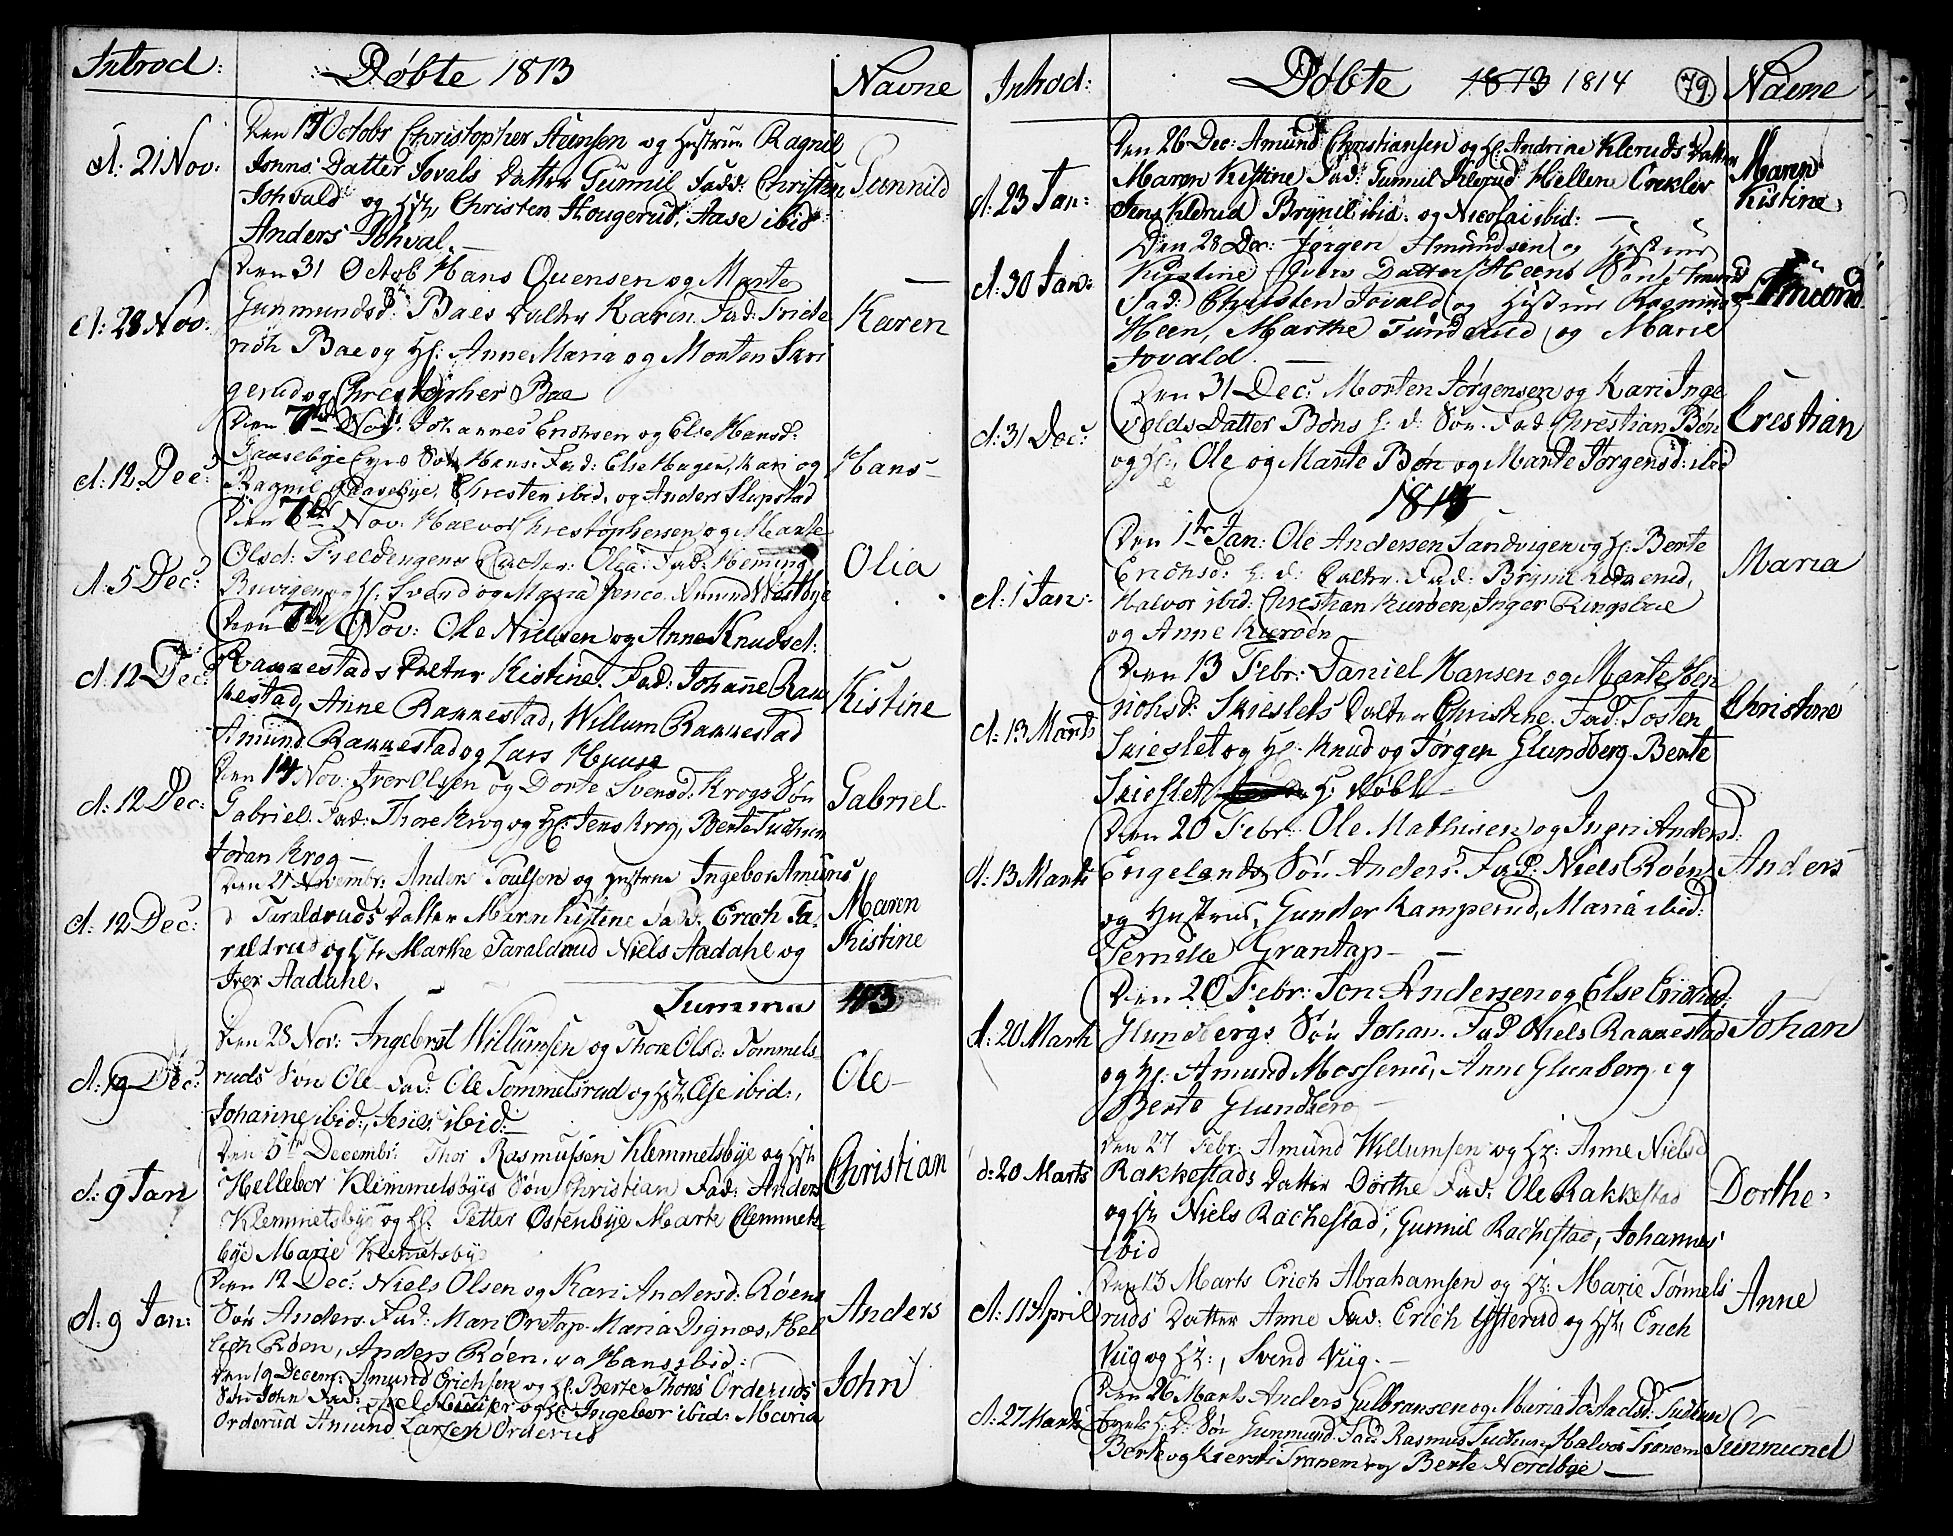 Introd: Døbte 1813 Navne
d: 21 Nov: Den 17 Octobr Christopher Steensen og Hustrue Ragnil Gunnild
Jonns Datter Jovals Datter Gunnil Fadd: Christen
Johvald og Hst: Christen Hougerud, Aase ibid:
Anders Johval. —
d: 28 Nov: Den 31 Octob Hans Quensen og Marte Karen
Gunmundsd: Baes Datter Karen Fad: Fride
rich Bae og H: Anne Maria og Morten Skri
gerud og Christopher Bae
d: 12 Dec: Den 7de Nov: Johannes Erichsen og Else Hansd: Hans
Gaasebye Søn Hans: Fad: Else Hagen, Kari og
Ragnil Gaasebye, Chresten ibid: og Anders Slupstad
d: 5 Dec: Den 7de Nov: Halvor Chrestophersen og Marte Olia
Olsd: Datter: Olia: Fad: Heming
og H: Svend og Maria Amund Westbye
d: 12 Dec: Den 7de Nov: Ole Nielsen og Anne Knudsd: Kistine
Rakkestads Datter Kistine. Fad: Johanne Rak
kestad, Anne Rakkestad, Willum Rakkestad
Amund Rakkestad og Lars Huuse
d: 12 Dec: Den 14 Nov: Iver Olsen og Dorte Svensd: Krogs Søn Gabriel
Gabriel. Fad: Thore Krog og H: Jens Krog, Berte Tuchun
Joran Krog —
d: 12 Dec: Den 21 Novembr: Anders Poulsen og Hustrue Ingebor Amuns Maren Kistine
d Taraldruds Datter Marn Kistine Fad: Erich Ta-
raldrud og Hst: Marthe Taraldrud Niels Aadahl og
Iver Aadahl.
Summa 43
d: 19 Dec: Den 28 Nov: Ingebret Willumsen og Thore Olsd: Tommels- Ole
ruds Søn Ole Fad: Ole Tommelsrud og Hst: Else ibid:,
Johanne ibid:, ibid:
d: 9 Jan Den 5te Decembr: Thor Rasmussen Klemmetsbye og Hst: Christian
Hellebor Klemmetsbyes Søn Christian Fad: Anders
Klemmetsbye og H: Petter Østenbye Marte Clemmets-
bye Marie Klemetsbye
d: 9 Jan: Den 12 Dec: Niels Olsen og Kari Andersd: Røens Anders
Søn Anders. Fad: Mari Ørstap Maria Dignæs, Hel
Røen, Anders Røen, og Hans ibid:
Den 19 Decem: Amund Erichsen og H: Berte Thores Orderuds John
Søn John Fad: og H: Ingebor ibid: Maria
Orderud Amund Larsen Orderud
Introd: Døbte 1813 1814 79 Navne
d: 23 Jan: Den 26 Dec: Amund Christiansen og H: Andrine Kleruds Datter Maren Kistine
Maren Kistine Fad: Gunnil Klerud Hellene Creklev
Jens Klerud Brynil ibid: og Nicolai ibid: —
d: 30 Jan: Den 28 Dec: Jørgen Amundsen og Hustrue Amund
Kirstine Ivers Datter Heens Søn Amund
Fad: Christen Jovald og Hustrue Ragnild
Heen, Marthe Tunderud og Marie
Jovald. —
d: 31 Dec: Den 31 Dec: Morten Jørgensen og Kari Inge Crestian
volds Datter Bøns h: d: Søn. Fad Chrestian Bøn
og H: Ole og Marte Bøn og Marte Jørgensd: ibid
1814
d: 1 Jan: Den 1te Jan: Ole Andersen Sandvigen og H: Berte Maria
Erichsd: h: d: Datter. Fad: Brynil
Halvor ibid: Chrestian Kurøen, Inger Ringsbye
og Anne Kurøen
d: 13 Marts Den 13 Febr: Daniel Hansen og Marte Hen Christine
richsd: Skieslets Datter Christine. Fad: Tosten
Skieslet og H: Knud og Jørgen Glundberg. Berte
Skieslet H: døbt
d: 13 Marts Den 20 Febr: Ole Mathisen og Ingri Andersd: Anders
Engelands Søn Anders. Fad: Niels Røen
og Hustrue, Gunder Kamperud, Maria ibid:
Pernelle Grantap —
d: 20 Marts Den 20 Febr: Jon Andersen og Else Erichsd: Johan
Glundbergs Søn Johan. Fad: Niels Rakkestad
og H: Amund Mosserud, Anne Glunberg og
Berte Glundberg —
d: 20 Marts Den 27 Febr: Amund Willumsen og H: Anne Nielsd Dorthe
Rakkestads Datter Dorthe Fad: Ole Rakkestad
og Hst: Niels Rachestad, Gunnil Rachestad, Johannes
ibid
d: 11 April Den 13 Marts Erich Abrahamsen og H: Marie Tønnels Anne
ruds Datter Anne Fad: Erich Ysterud og Hst: Erich
Viig og H:, Svend Viig. —
d: 27 Marts Den 26 Marts Anders Gulbransen og Maria Jostadsd: Tuchun Gunmund
byes H: d: Søn Gunmund. Fad Rasmus Tuchun, Halvor Tranem
Berte og Kierste Tranem og Berte Nordbye —